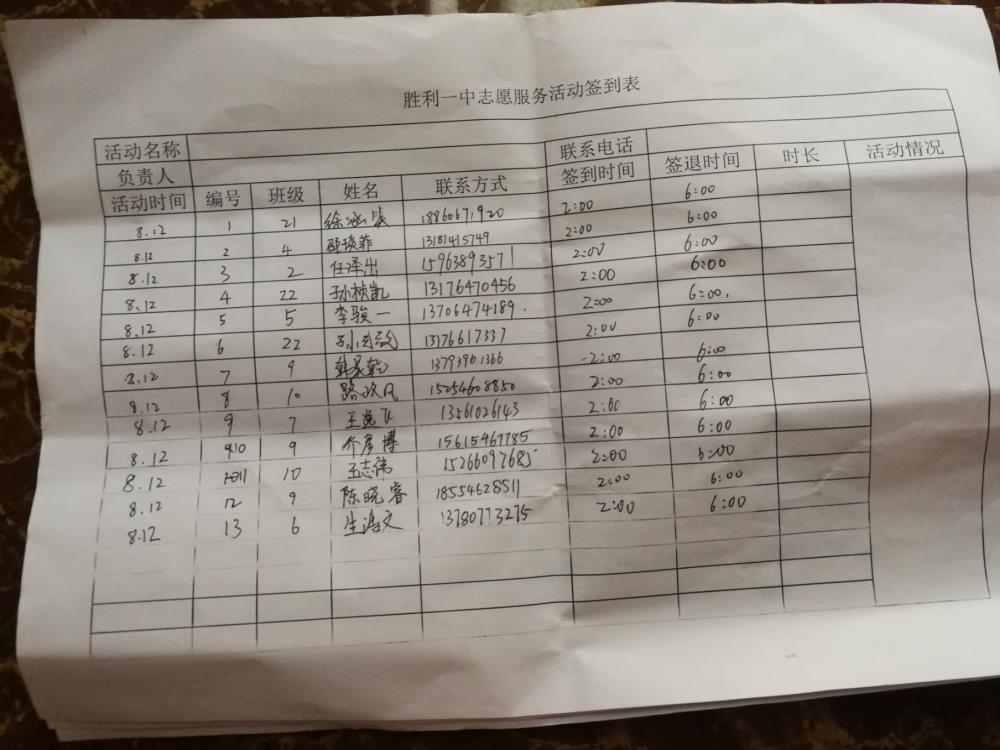 胜利一中志愿服务活动签到表
活动名称
负责人 联系电话
活动时间 编号 班级 姓名 联系方式 签到时间 签退时间 时长 活动情况
8.12 1 21 徐 18860671920 2:00 6:00
8.12 2 4 琰菲 13181415749 2:00 6:00
8.12 3 2 任泽出 15963893571 2:00 6:00
8.12 4 22 孙桢凯 13176470456 2:00 6:00
8.12 5 5 李骏一 13706474189. 2:00 6:00.
8.12 6 22 13176617337 2:00 6:00
8.12 7 9 韩 13793901366 2:00 6:00
8.12 8 10 路 15254608850 2:00 6:00
8.12 9 7 王逸飞 13561026143 2:00 6:00
8.12 10 9 乔彦博 15615467785 2:00 6:00
8.12 11 10 王志伟 15266097685 2:00 6:00
8.12 12 9 陈晓睿 18554628511 2:00 6:00
8.12 13 6 生浩文 13780773275 2:00 6:00